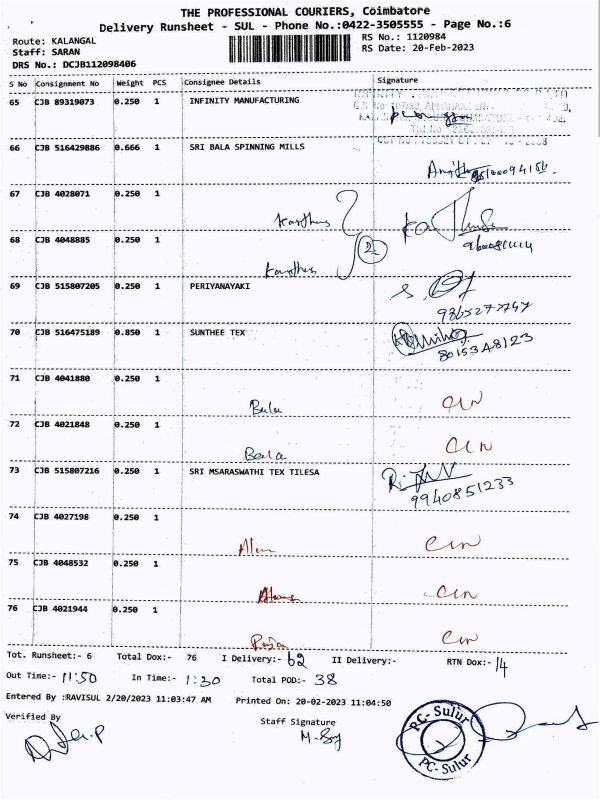 THE PROFESSIONAL COURIERS, Coimbatore
Delivery Runsheet - SUL - Phone No.:0422-3505555 - Page No.:6
Route: KALANGAL RS No.: 1120984
Staff: SARAN RS Date: 20-Feb-2023
DRS No.: DCJB112098406
S No Consignment No Weight PCS Consignee Details Signature
65 CJB 89319073 0.250 1 INFINITY MANUFACTURING
66 CJB 516429886 0.666 1 SRI BALA SPINNING MILLS
67 CJB 4028071 0.250 1
68 CJB 4048885 0.250 1
2
69 CJB 515807205 0.250 1 PERIYANAYAKI
9865277747
70 CJB 516475189 0.850 1 SUNTHEE TEX
8015348123
71 CJB 4041880 0.250 1
Bala
72 CJB 4021848 0.250 1
Bala
73 CJB 515807216 0.250 1 SRI MSARASWATHI TEX TILESA
9940851233
74 CJB 4027198 0.250 1
75 CJB 4048532 0.250 1
76 CJB 4021944 0.250 1
Tot. Runsheet:- 6 Total Dox:- 76 I Delivery:- 62 II Delivery:- RTN Dox:- 14
Out Time:- 11:50 In Time:- 1:30 Total POD:- 38
Entered By :RAVISUL 2/20/2023 11:03:47 AM Printed On: 20-02-2023 11:04:50
Verified By Staff Signature
PC-Sulur
PC-Sulur